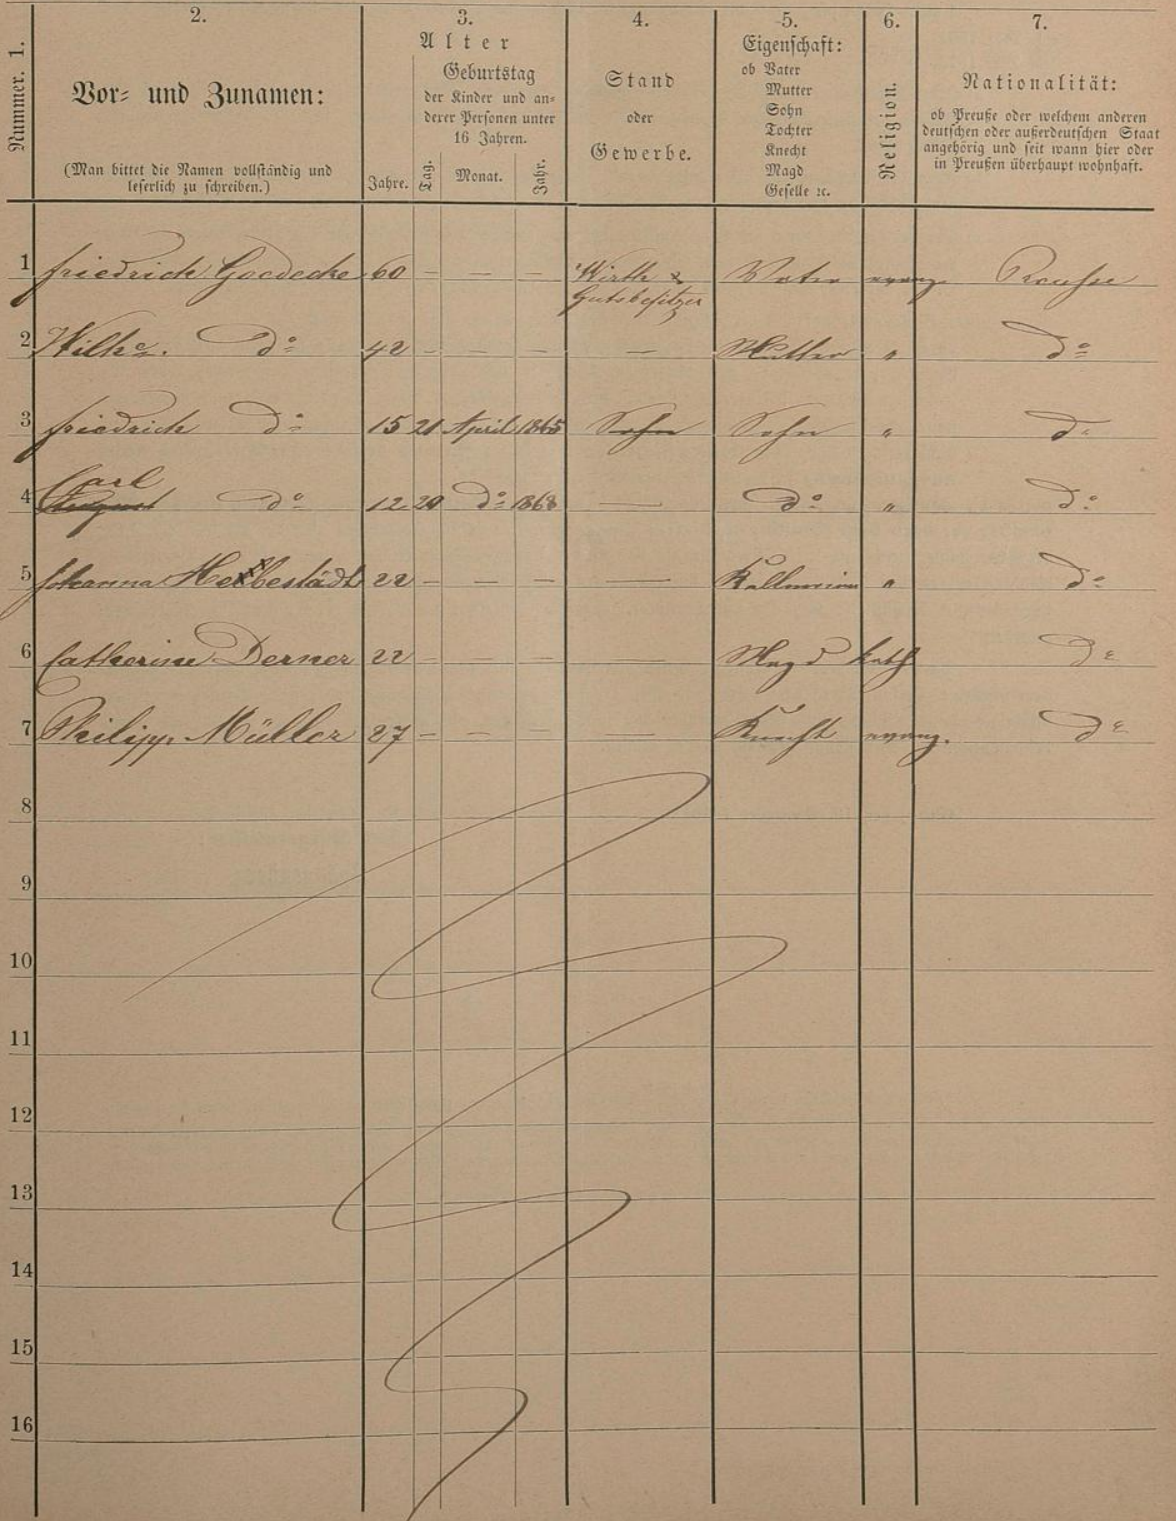 Nummer. 1.
2.
Vor- und Zunamen:
(Man bittet die Namen vollständig und
leserlich zu schreiben.)
3.
Alter
Jahre.
Geburtstag
der Kinder und an-
derer Personen unter
16 Jahren.
Tag. Monat. Jahr.
4.
Stand
oder
Gewerbe.
5.
Eigenschaft:
ob Vater
Mutter
Sohn
Tochter
Knecht
Magd
Geselle ꝛc.
6.
Religion.
7.
Nationalität:
ob Preuße oder welchem anderen
deutschen oder außerdeutschen Staat
angehörig und seit wann hier oder
in Preußen überhaupt wohnhaft.
1 Friedrich Goedecke 60 – – – Wirth & Vater evang. Preuße
Gutsbesitzer
2 Wilhe. do 42 – – – – Mutter " do
3 Friedrich do 15 21 April 1865 Sohn Sohn " do
Carl
4 August do 12 20 do 1868 – do " do
5 Johanna Hebestädt 22 – – – – Kellnerin " do
6 Catherine Derner 22 – – – – Magd kath do
7 Philipp Müller 27 – – – – Knecht evang. do
8
9
10
11
12
13
14
15
16